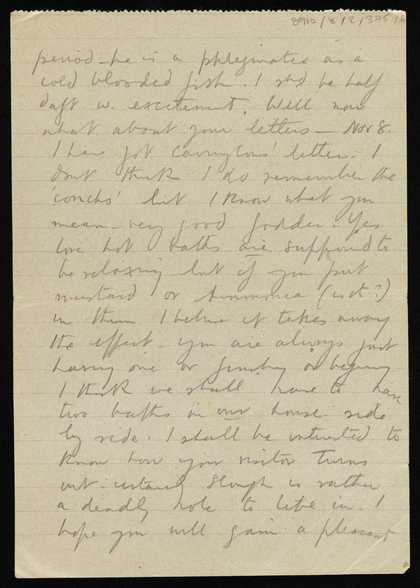 8910/8/2/375
period – he is a phlegmatic as a
cold blooded fish. I shd be half
daft w. excitement. Well now
what about your letters – Nov 8.
I have got Carringtons' letter. I
don't think I do remember the
'conchs' but I know what you
mean – very good fodder. Yes
love hot baths are supposed to
be relaxing but if you put
mustard or ammonia (is it?)
in them I believe it takes away
the effect – you are always just
having one or finishing or begining
I think we shall have to have
two baths in our house side
by side. I shall be interested to
know how your visitor turns
out. Slough is rather
a deadly hole to live in. I
hope you will gain a pleasant